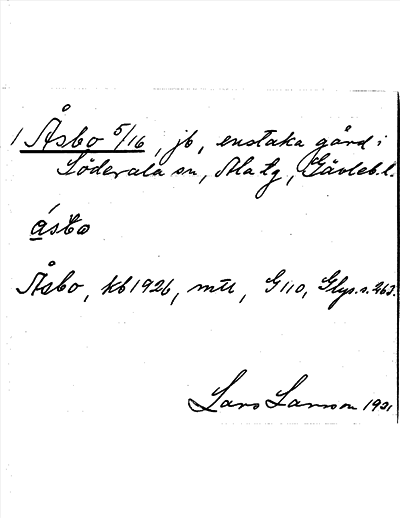 1 Åsbo 5/16, jb, enstaka gård i
Söderala sn, Ala tg, Gävleb. l.
ásbo
Åsbo, kb 1926, mtl, G110, s. 263.
Lars Larsson 1931